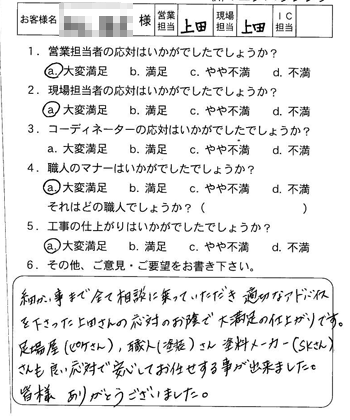 お客様名 様 営業担当 上田 現場担当 上田 IC担当
1．営業担当者の応対はいかがでしたでしょうか？
a. 大変満足 b. 満足 c. やや不満 d. 不満
2．現場担当者の応対はいかがでしたでしょうか？
a. 大変満足 b. 満足 c. やや不満 d. 不満
3．コーディネーターの応対はいかがでしたでしょうか？
a. 大変満足 b. 満足 c. やや不満 d. 不満
4．職人のマナーはいかがでしたでしょうか？
a. 大変満足 b. 満足 c. やや不満 d. 不満
それはどの職人でしょうか？（ ）
5．工事の仕上がりはいかがでしたでしょうか？
a. 大変満足 b. 満足 c. やや不満 d. 不満
6．その他、ご意見・ご要望をお書き下さい。
細かい事まで全て相談に乗っていただき 適切なアドバイス
を下さった上田さんの応対のお陰で大満足の仕上がりです。
足場屋(ビケさん)，職人(塗装)さん 塗料メーカー(SKさん)
さんも良い応対で安心してお任せする事が出来ました。
皆様 ありがとうございました。